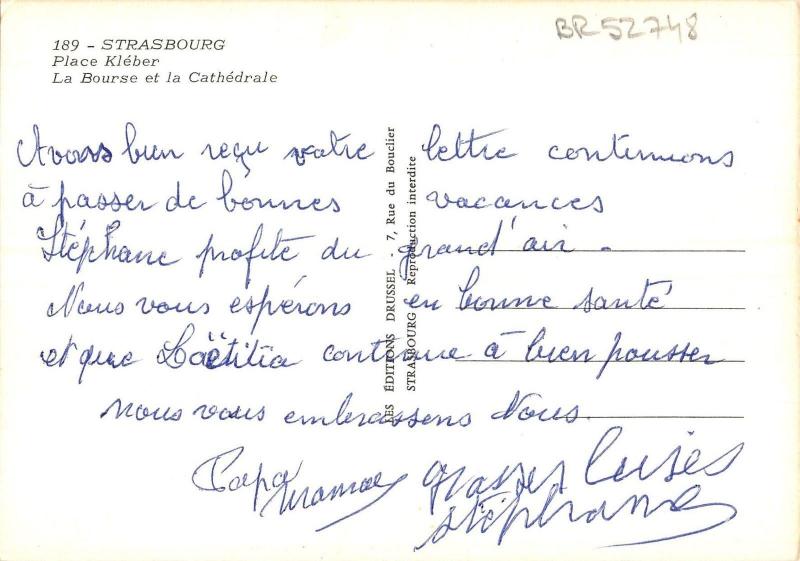 BR52748
189 - STRASBOURG
Place Kléber
La Bourse et la Cathédrale
Avons bien reçu votre lettre continuons
à passer de bonnes vacances
Stéphane profite du grand'air -
Nous vous espérons en bonne santé
et que Laëtitia continue à bien pousser
nous vous embrassons Nous.
Papa Maman Grosses bises
Stéphane
LES ÉDITIONS DRUSSEL - 7, Rue du Bouclier
STRASBOURG - Reproduction interdite